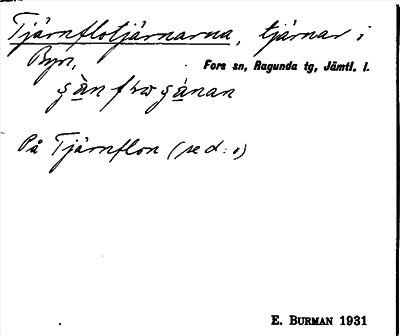 Tjärnflotjärnarna, tjärnar i
Byn, Fors sn, Ragunda tg, Jämtl. l.
På Tjärnflon (se d: o)
E. BURMAN 1931